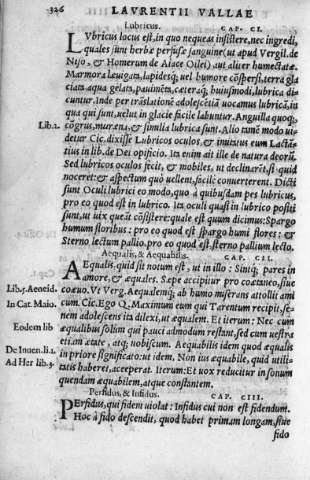 326 LAVRENTII VALLAE
Lubricus. CAP. CI.
LVbricus locus est, in quo nequeas insistere, nec ingredi,
quales sunt herbæ perfusæ sanguine (ut apud Vergil. de
Niso, & Homerum de Aiace Oilei) aut aliter humectatæ.
Marmora læuigata, lapidesq; uel humore cōspersi, terra gla
ciata aqua gelata, pauimēta, cæteraq; huiusmodi, lubrica di
cuntur. Inde per trāslationē adolescētiā uocamus lubricā, in
qua qui sunt, uelut in glacie facile labuntur. Anguilla quoq;,
Lib.2. cōgrus, muræna, & similia lubrica sunt. Alio tamē modo ui-
detur Cic. dixisse Lubricos oculos, & inuitatus eum Lactā-
tius in lib. de Dei opificio. Ita enim ait ille de natura deorū.
Sed lubricos oculos fecit, & mobiles, ut declinarēt, si quid
noceret: & aspectum quò uellent, facilè conuerterent. Dicti
sunt Oculi lubrici eo modo, quo à quibusdam pes lubricus,
pro eo quod est in lubrico. Ita oculi quasi in lubrico positi
sunt, ut uix queāt cōsistere: quale est quum dicimus: Spargo
humum floribus: pro eo quod est spargo humi flores: &
Sterno lectum pallio. pro eo quod est, sterno pallium lecto.
Aequalis, & Aequabilis. CAP. CII.
AEqualis, quid sit notum est, ut in illo: Sintq; pares in
amore, & æquales. Sæpe accipitur pro coætaneo, siue
Lib.5. Aeneid. coæuo. Vt Verg. Aequalemq; ab humo miserans attollit ami
In Cat. Maio. cum. Cic. Ego Q. Maximum eum qui Tarentum recipit, se-
nem adolescens ita dilexi, ut æqualem. Et iterum: Nec cum
Eodem lib æqualibus solùm qui pauci admodum restant, sed cum uestra
etiam ætate, atq; uobiscum. Aequabilis idem quod æqualis
De Inuen. li.1. in priore significato: ut idem. Non ius æquabile, quid utili-
Ad Her lib.3. tatis haberet, acceperat. Iterum: Et uox reducitur in sonum
quendam æquabilem, atque constantem.
Perfidus, & Infidus. CAP. CIII.
PErfidus, qui fidem uiolat: Infidus cui non est fidendum.
Hoc à fido descendit, quod habet primam longam, siue
fido